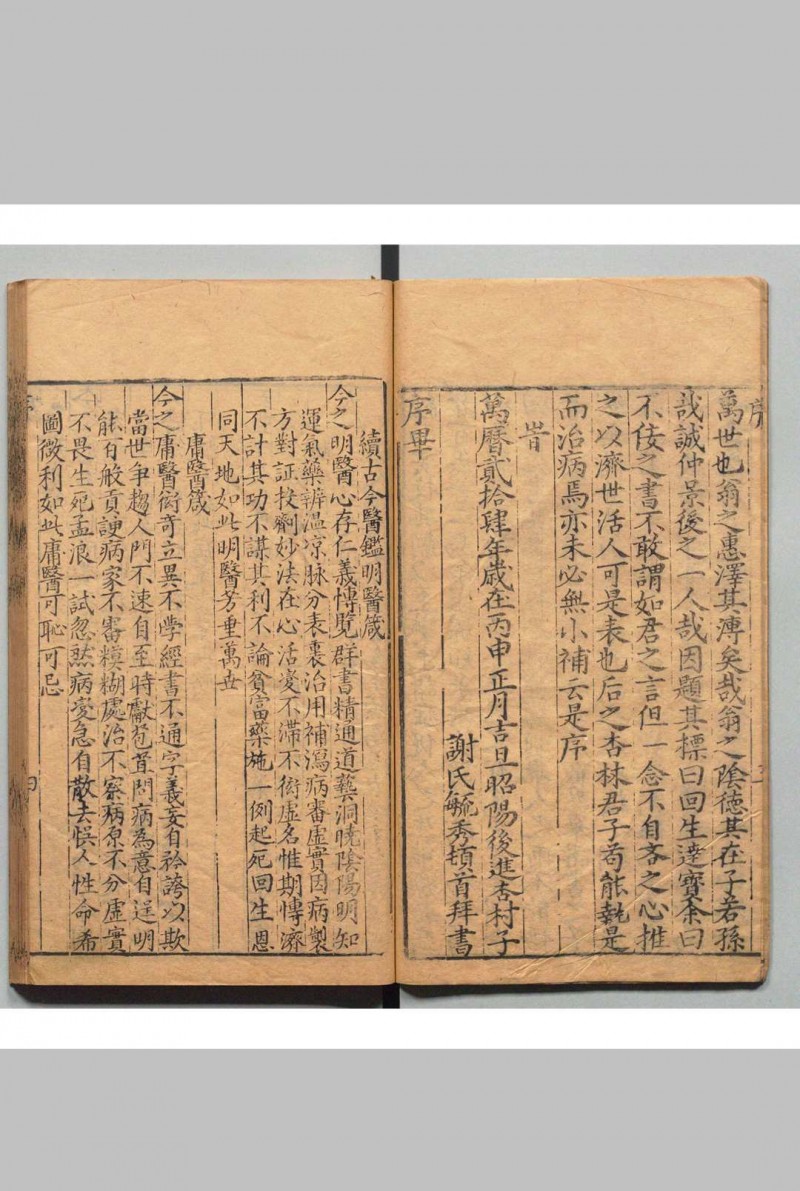 序
萬世也翁之惠澤其溥矣哉翁之陰德其在子若孫
哉誠仲景後之一人哉因題其標曰回生達寶余曰
不佞之書不敢謂如君之言但一念不自吝之心推
之以濟世活人可是表也后之杏林君子苟能執是
而治病焉亦未必無小補云是序
旹
萬曆貳拾肆年歲在丙申正月吉旦昭陽後進杏村子
謝氏毓秀頓首拜書
序畢
續古今醫鑑明醫箴
今之明醫心存仁義愽覽群書精通道藝洞曉陰陽明知
運氣藥辨溫凉脉分表裏治用補瀉病審虛實因病製
方對証投劑妙法在心活变不滯不衒虛名惟期愽濟
不計其功不謀其利不論貧富藥施一例起死回生恩
同天地如此明醫芳垂萬世
庸醫箴
今之庸醫衒奇立異不學經書不通字義妄自矜誇以欺
當世争趨人門不速自至時獻苞苴問病為意自逞明
能百般貢諛病家不審糢糊處治不察病原不分虛實
不畏生死孟浪一試忽然病变急自散去悞人性命希
圖微利如此庸醫可恥可忌